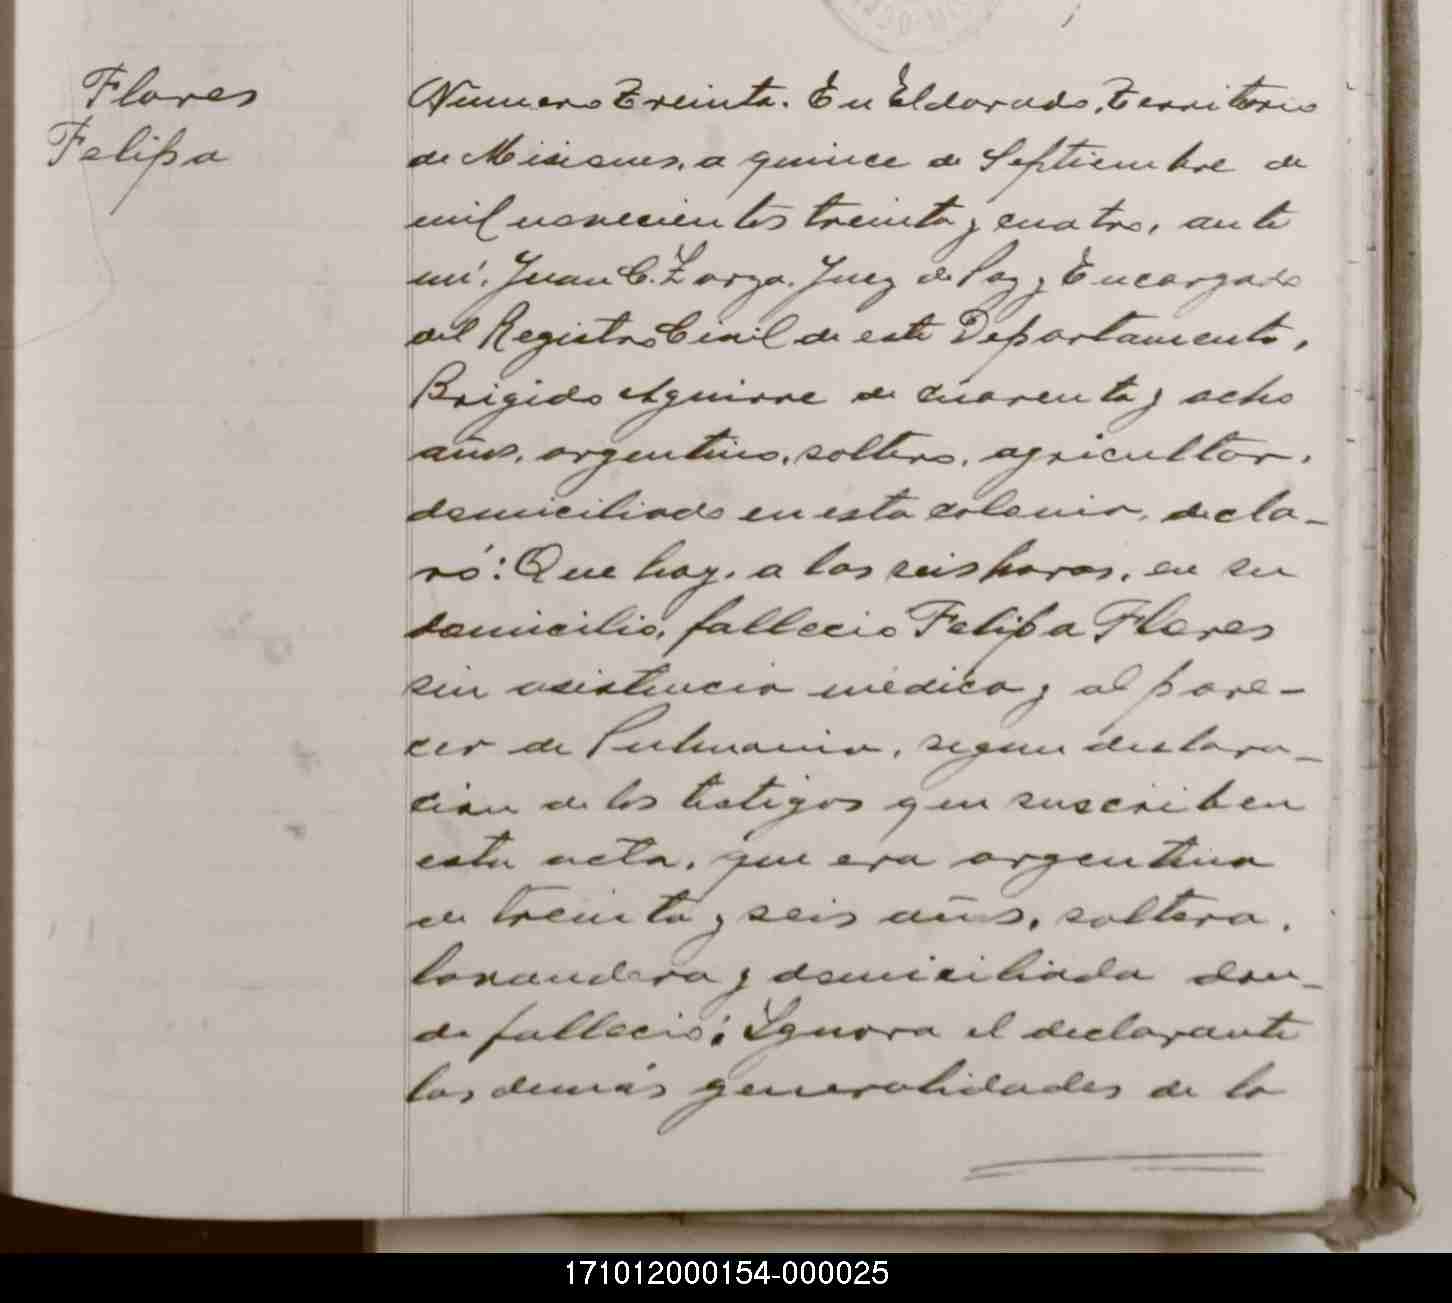 Flores
Felipa
Número Treinta. En Eldorado, Territorio
de Misiones, a quince de Septiembre de
mil novecientos treinta y cuatro, ante
mí, Juan C. Zarza, Juez de Paz y Encargado
del Registro Civil de este Departamento,
Brigido Aguirre de cuarenta y ocho
años, argentino, soltero, agricultor,
domiciliado en esta colonia, decla-
ró: Que hoy, a las seis horas, en su
domicilio, fallecio Felipa Flores
sin asistencia médica y al pare-
cer de Pulmonia, segun declara-
cion de los testigos que suscriben
esta acta, que era argentina
de treinta y seis años, soltera,
lavandera y domiciliada don-
de fallecio; Ignora el declarante
las demás generalidades de la
171012000154-000025